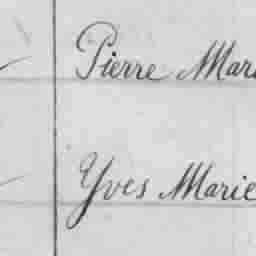 Pierre Mar
Yves Marie